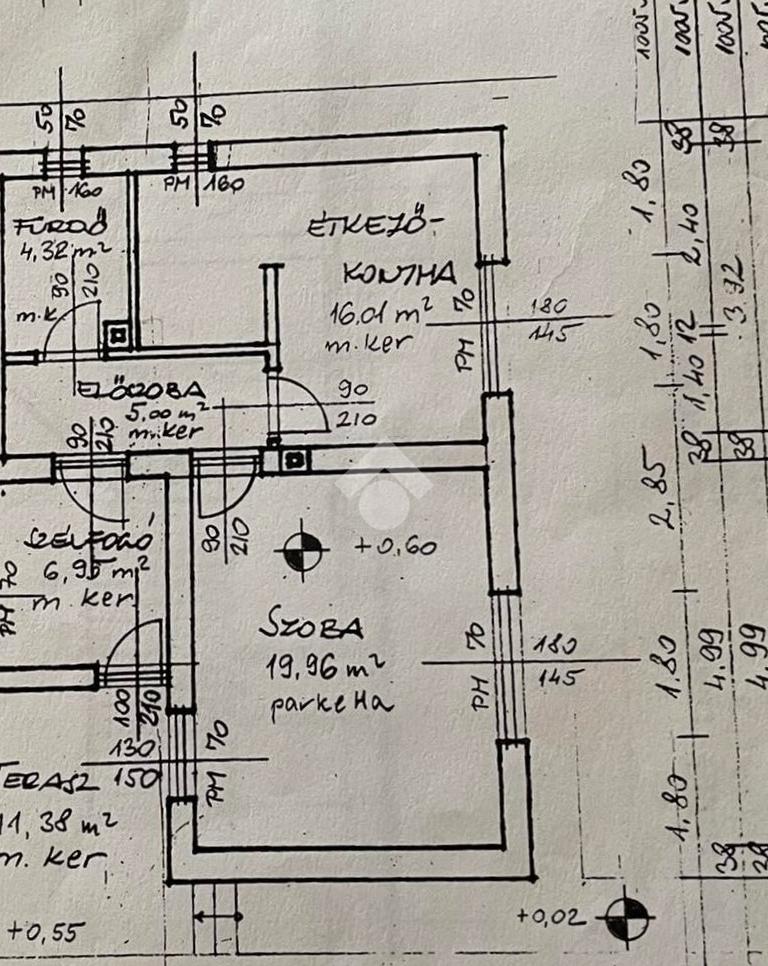 50
70
PM 160
50
70
PM 160
FÜRDŐ
4,32 m²
90
210
m.k
ÉTKEZŐ-
KONYHA
16.01 m²
m.ker
PM 70
180
145
ELŐSZOBA
5,00 m²
m.ker
90
210
90
210
90
210
SZÉLFOGÓ
6,95 m²
m. ker
PM 70
+0,60
SZOBA
19,96 m²
parketta
PM 70
180
145
100
210
130
150
PM 70
TERASZ
11,38 m²
m. ker
+0,55
+0,02
38
38
1,80
2,40
3.92
1,80
12
1,40
38
38
2,85
1,80
4,99
4,99
1,80
38
38